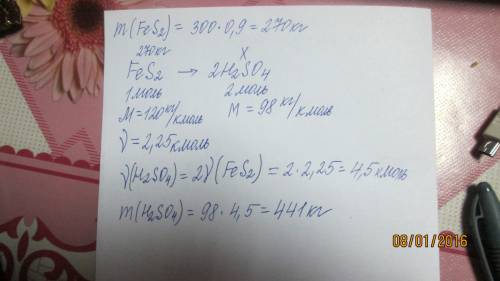 m(FeS₂) = 300·0,9 = 270 кг
270кг X
FeS₂ → 2H₂SO₄
1 моль 2 моль
M=120 кг/кмоль M = 98 кг/кмоль
ν = 2,25 кмоль
ν(H₂SO₄) = 2ν(FeS₂) = 2·2,25 = 4,5 кмоль
m(H₂SO₄) = 98·4,5 = 441 кг
08/01/2016